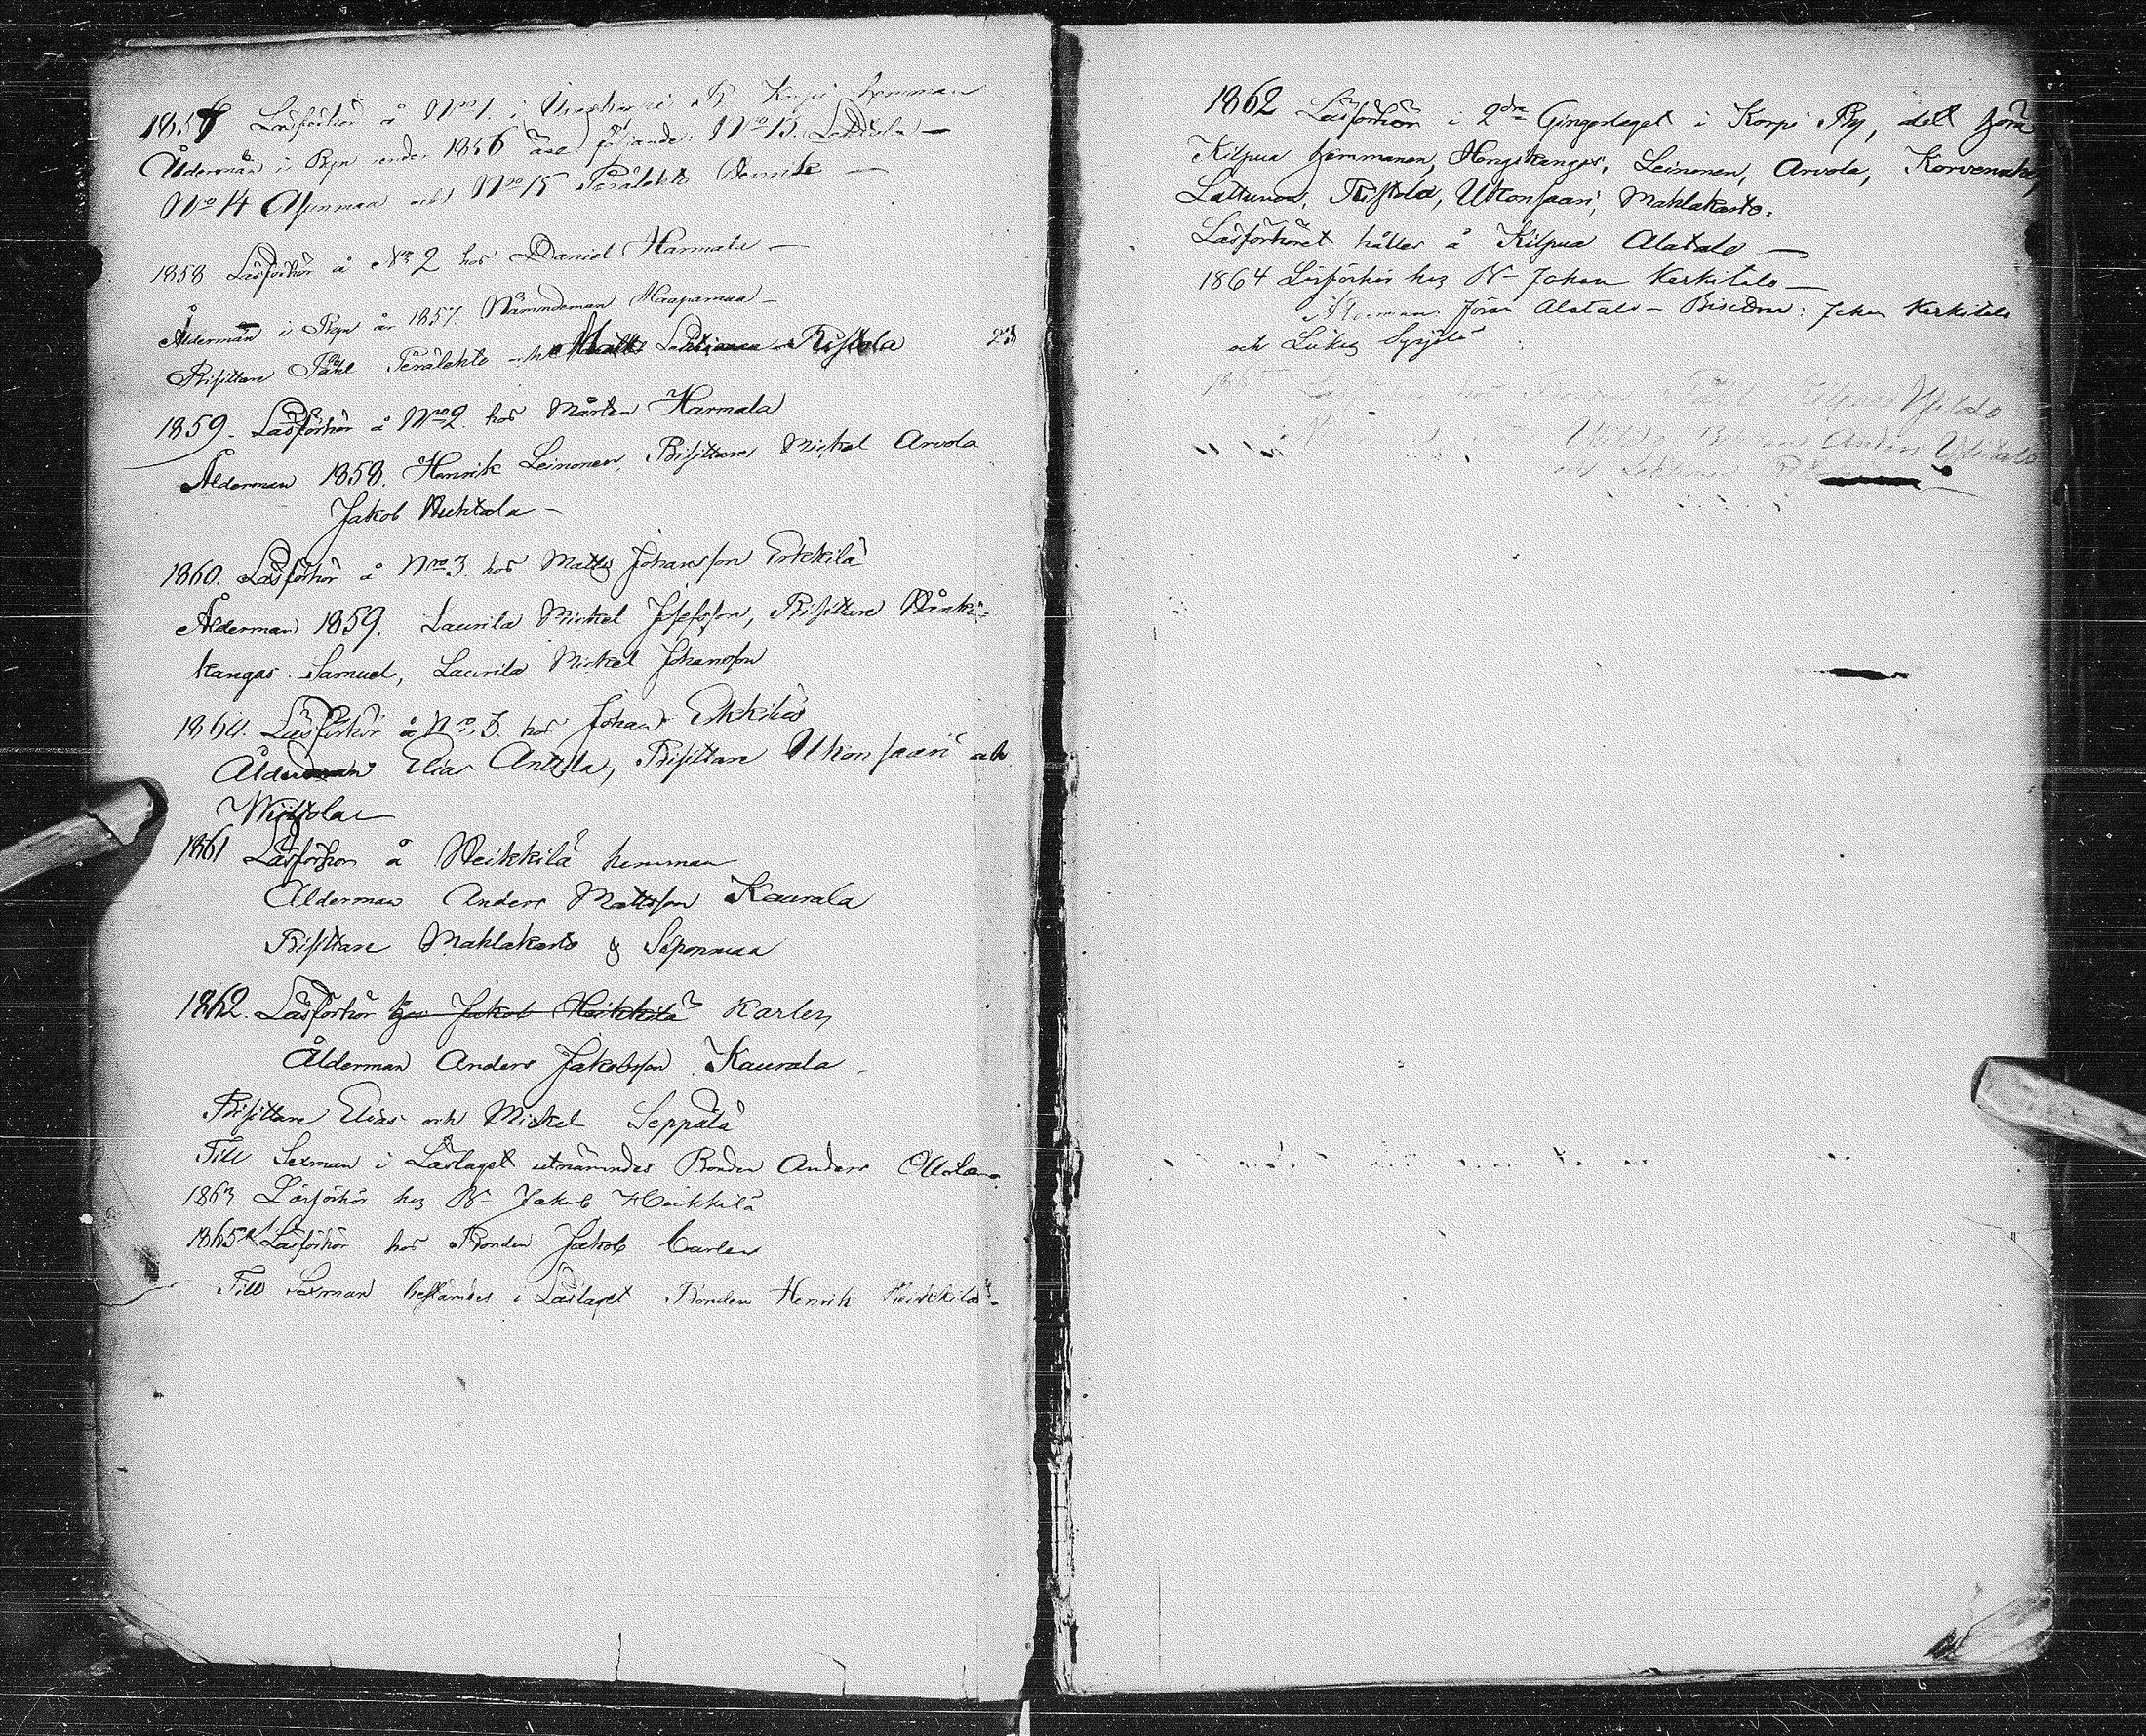 1857 Läsförhör å No 1. i Korpi hemman
Ålderman i Byn under 1856 äro följande: No 13. Lahdela —
No 14 Asunmaa och No 15 Perälehto Henrik —
1858 Läsförhör å No 2 hos Daniel Harmala —
Ålderman i Byn år 1857. Nämndeman Haapamaa —
Bisittare Påhl Perälehto Matts Ristola 23
1859. Läsförhör å No 2. hos Mårten Harmala
Ålderman 1858. Henrik Leinonen, Bisittare Mickel Arvola
Jakob Huhtala —
1860. Läsförhör å No 3. hos Matts Johansson Erkkilä
Ålderman 1859. Laurila Mickel Josefsson, Bisittare Hånki-
kangas Samuel, Laurila Mickel Johansson
1860. Läsförhör å No 3. hos Johan Erkkilä
Ålderman Elias Anttila, Bisittare Ukonsaari och
Wiitola
1861 Läsförhör å Heikkilä hemman
Ålderman Anders Mattsson Kaurala
Bisittare Mahlakarto & Seponmaa
1862. Läsförhör hos Jakob Heikkilä Karlen
Ålderman Anders Jakobsson Kaurala
Bisittare Elias och Mickel Seppälä
Till Sexman i Läslaget utnämndes Bonden Anders
1863 Läsförhör hos B— Jakob Heikkilä
1865 Läsförhör hos Bonden Jakob Carlen
Till Sexman i Läslaget Bonden Henrik Heikkilä —
1862 Läsförhör i 2dra Gingerlaget i Korpi By, det göra
Kilpua hemmanen, Hongikangas, Leinonen, Arvola, Korvenaho,
Lattunen, Ristola, Ukonsaari, Mahlakarto.
Läsförhöret hålles å Kilpua Alatalo —
1864 Läsförhör hos B— Johan Keskitalo —
Jöran Alatalo — Bisittare: Johan Keskitalo
och Lukas Syrjälä
hos Påhl Kilpua Ylitalo
Anders Ylitalo